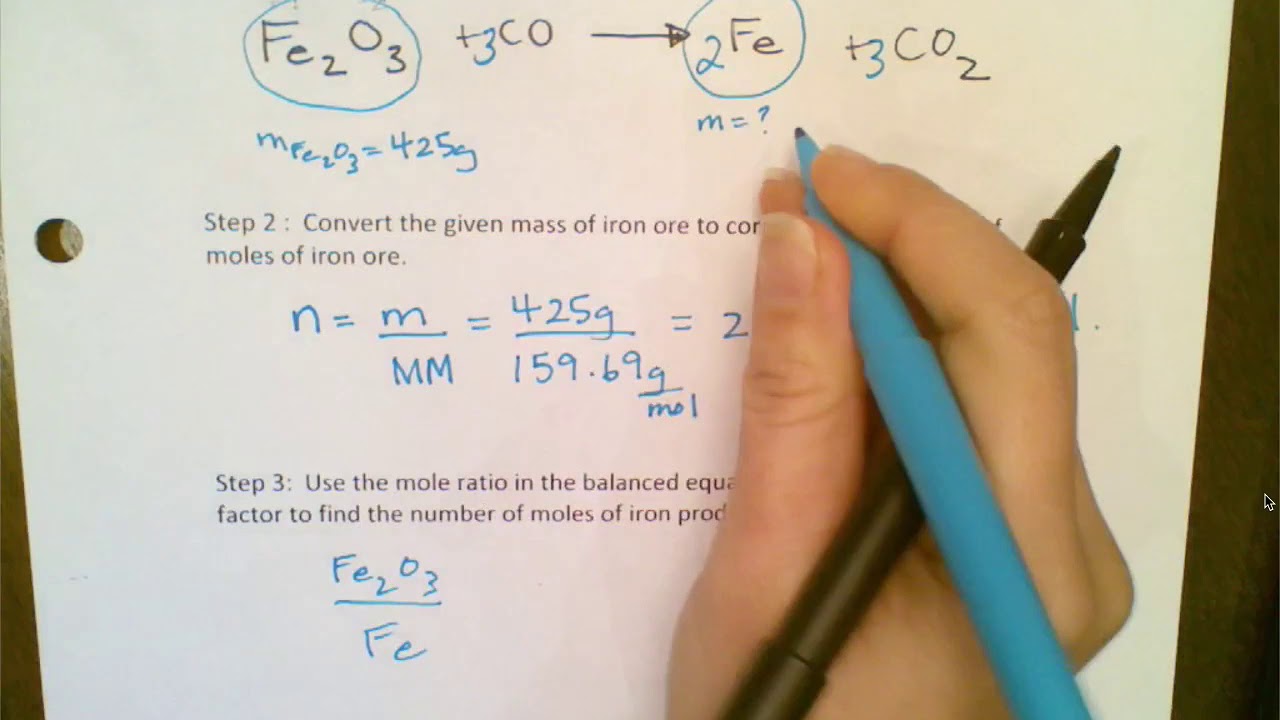 Fe2O3 +3CO → 2Fe +3CO2
mFe2O3 = 425g
m = ?
Step 2 : Convert the given mass of iron ore to
moles of iron ore.
n = m/MM = 425g/159.69 g/mol = 2
Step 3: Use the mole ratio in the balanced
factor to find the number of moles of iron
Fe2O3
Fe